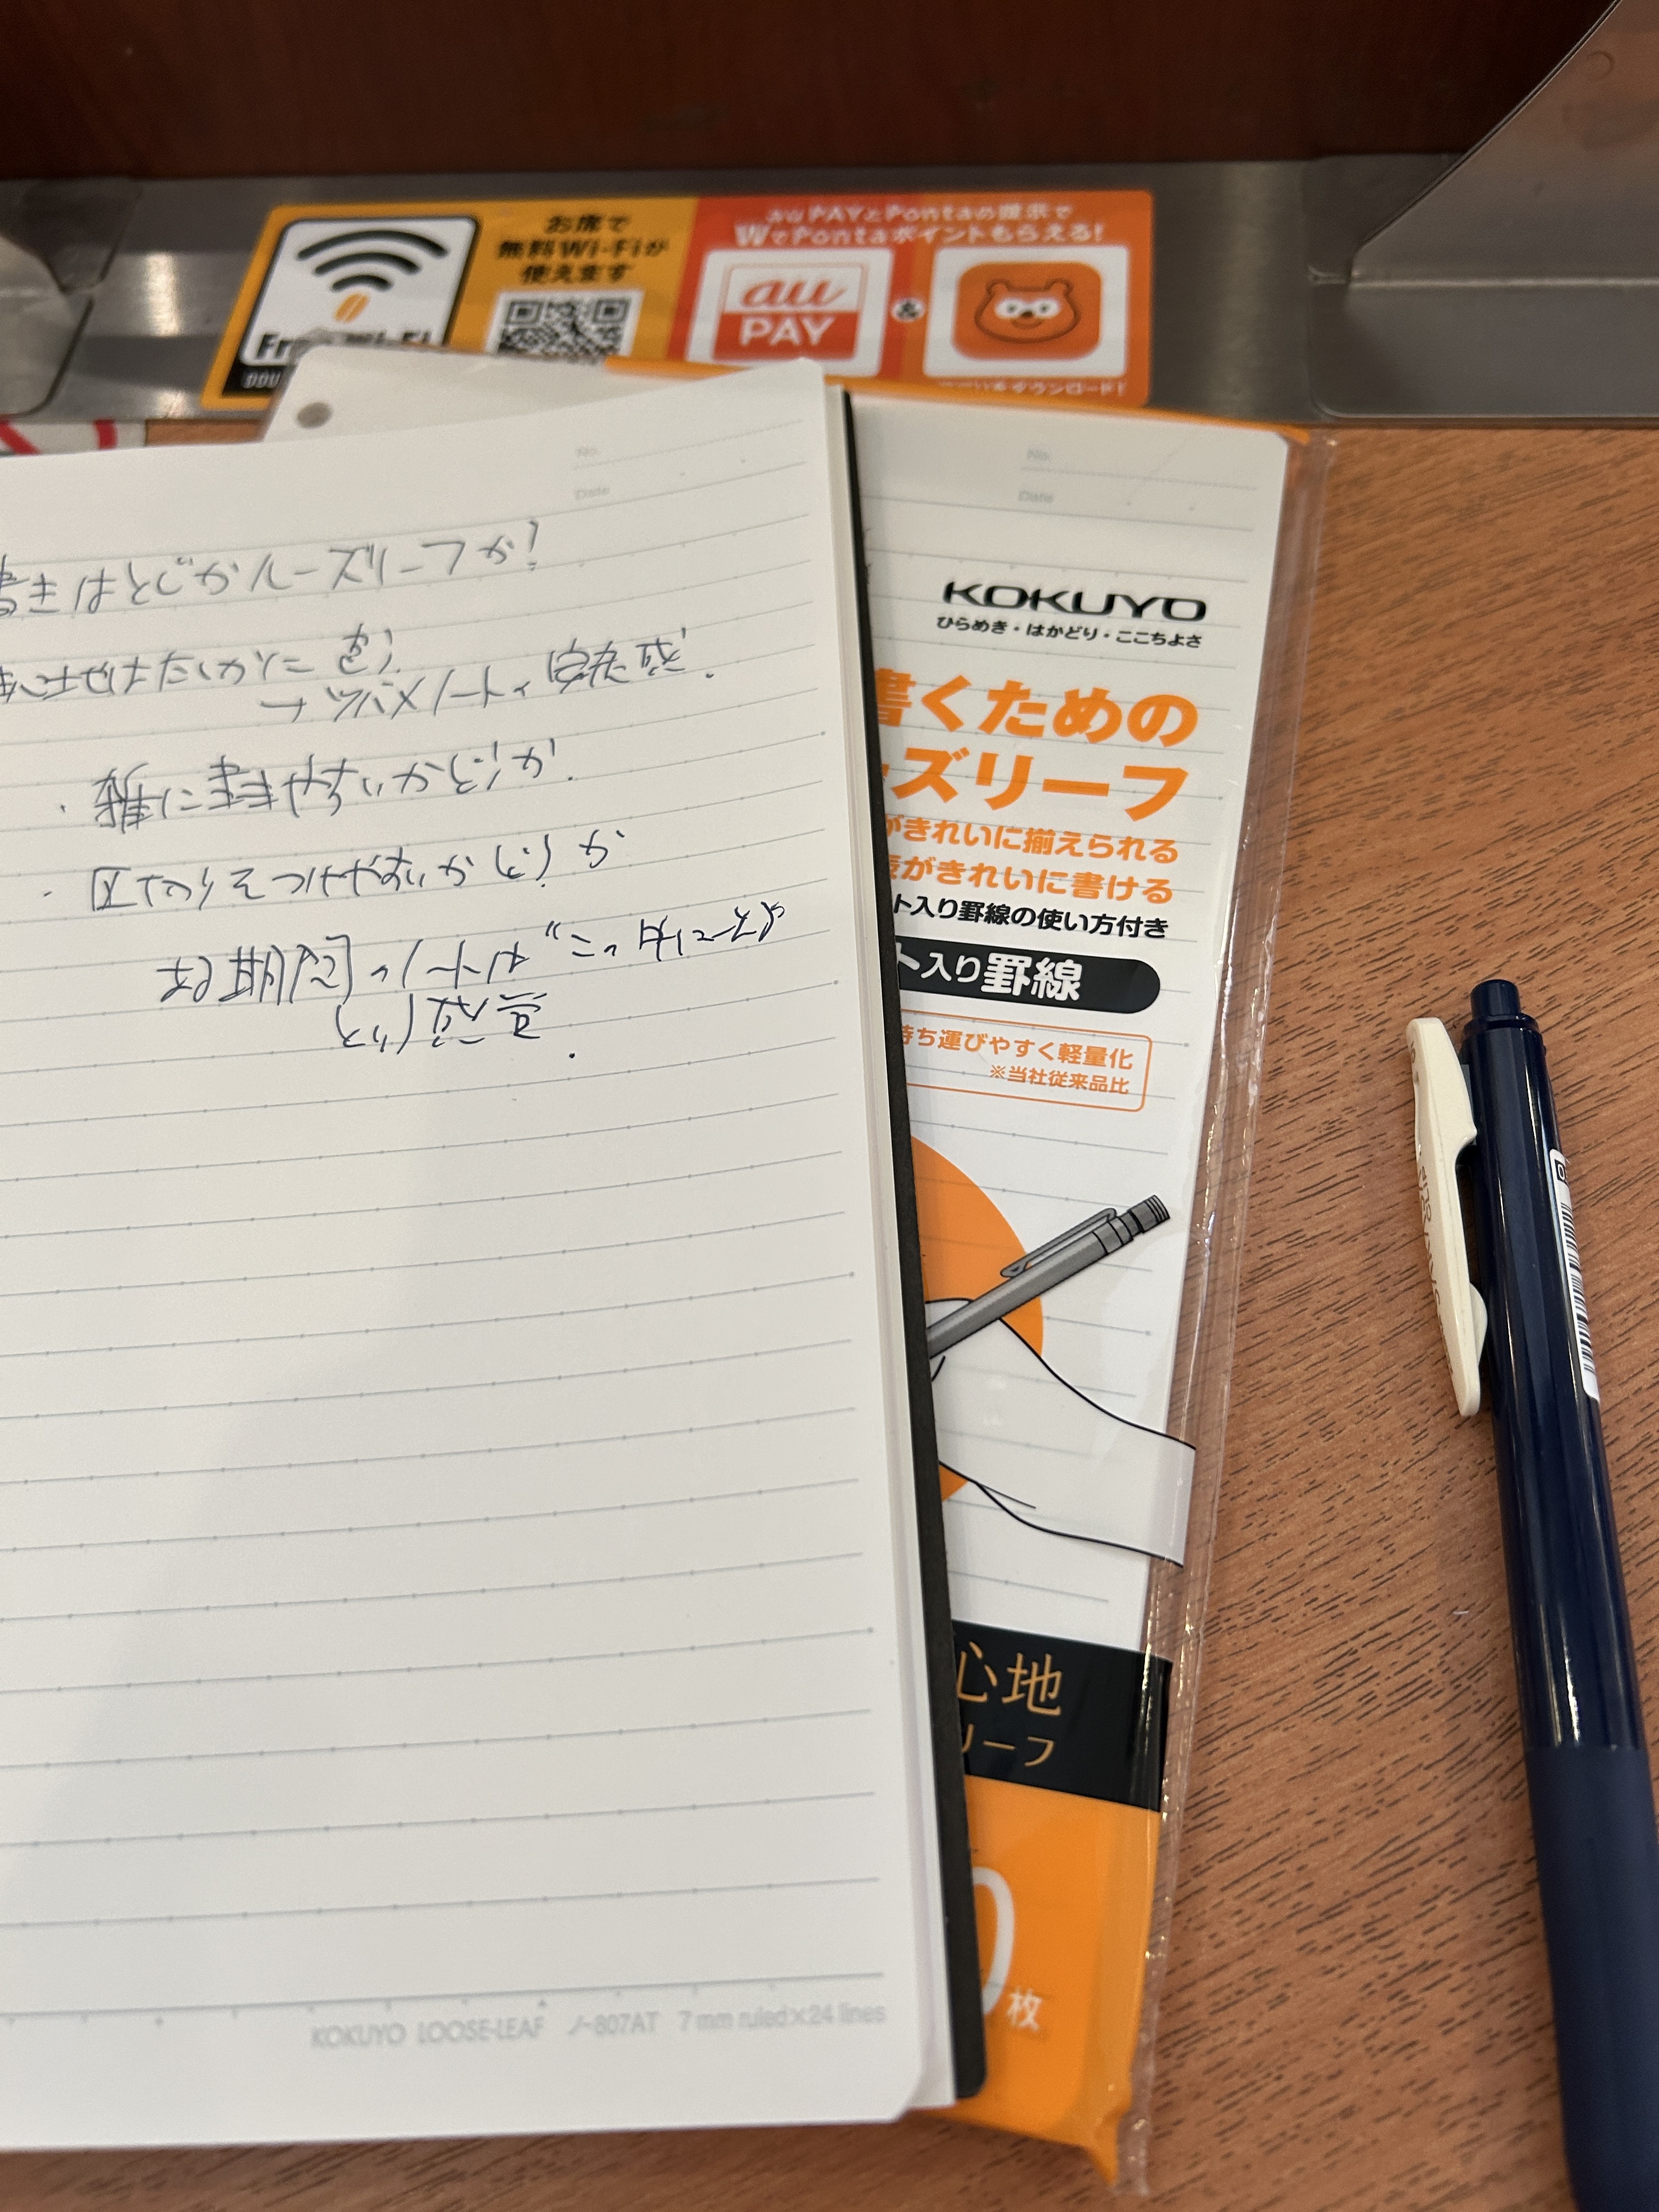 お席で
無料Wi-Fiが
使えます
au PAYとPontaの提示で
WでPontaポイントもらえる!
au
PAY
&
Free Wi-Fi
DOU
をダウンロード!
No.
Date
書きはとじかルーズリーフか!
地はたしかに
→ツバメノート、完成感.
・雑に書きやすいかどうか.
・区切りをつけやすいかどうか
ある期間のノートは"この
という感覚.
KOKUYO LOOSE-LEAF ノ-807AT 7 mm ruled×24 lines
No.
Date
KOKUYO
ひらめき・はかどり・ここちよさ
書くための
ズリーフ
がきれいに揃えられる
表がきれいに書ける
ト入り罫線の使い方付き
ト入り罫線
持ち運びやすく軽量化
※当社従来品比
心地
リーフ
0枚